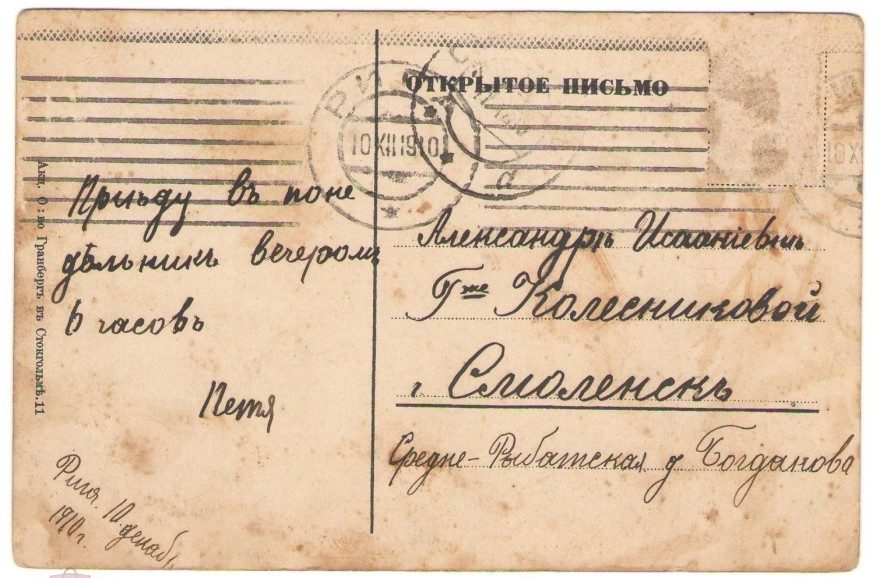 ОТКРЫТОЕ ПИСЬМО
РИГА
10 XII 1910
Акц. О:во Гранбергъ въ Стокгольмѣ. 11
Пріѣду въ поне
дѣльникъ вечеромъ
6 часовъ
Петя
Рига. 10. декабь
1910 г.
Александрѣ Исаакіевнѣ
Гже Колесниковой
г. Смоленскъ
Средне-Рыбатская д Богданова